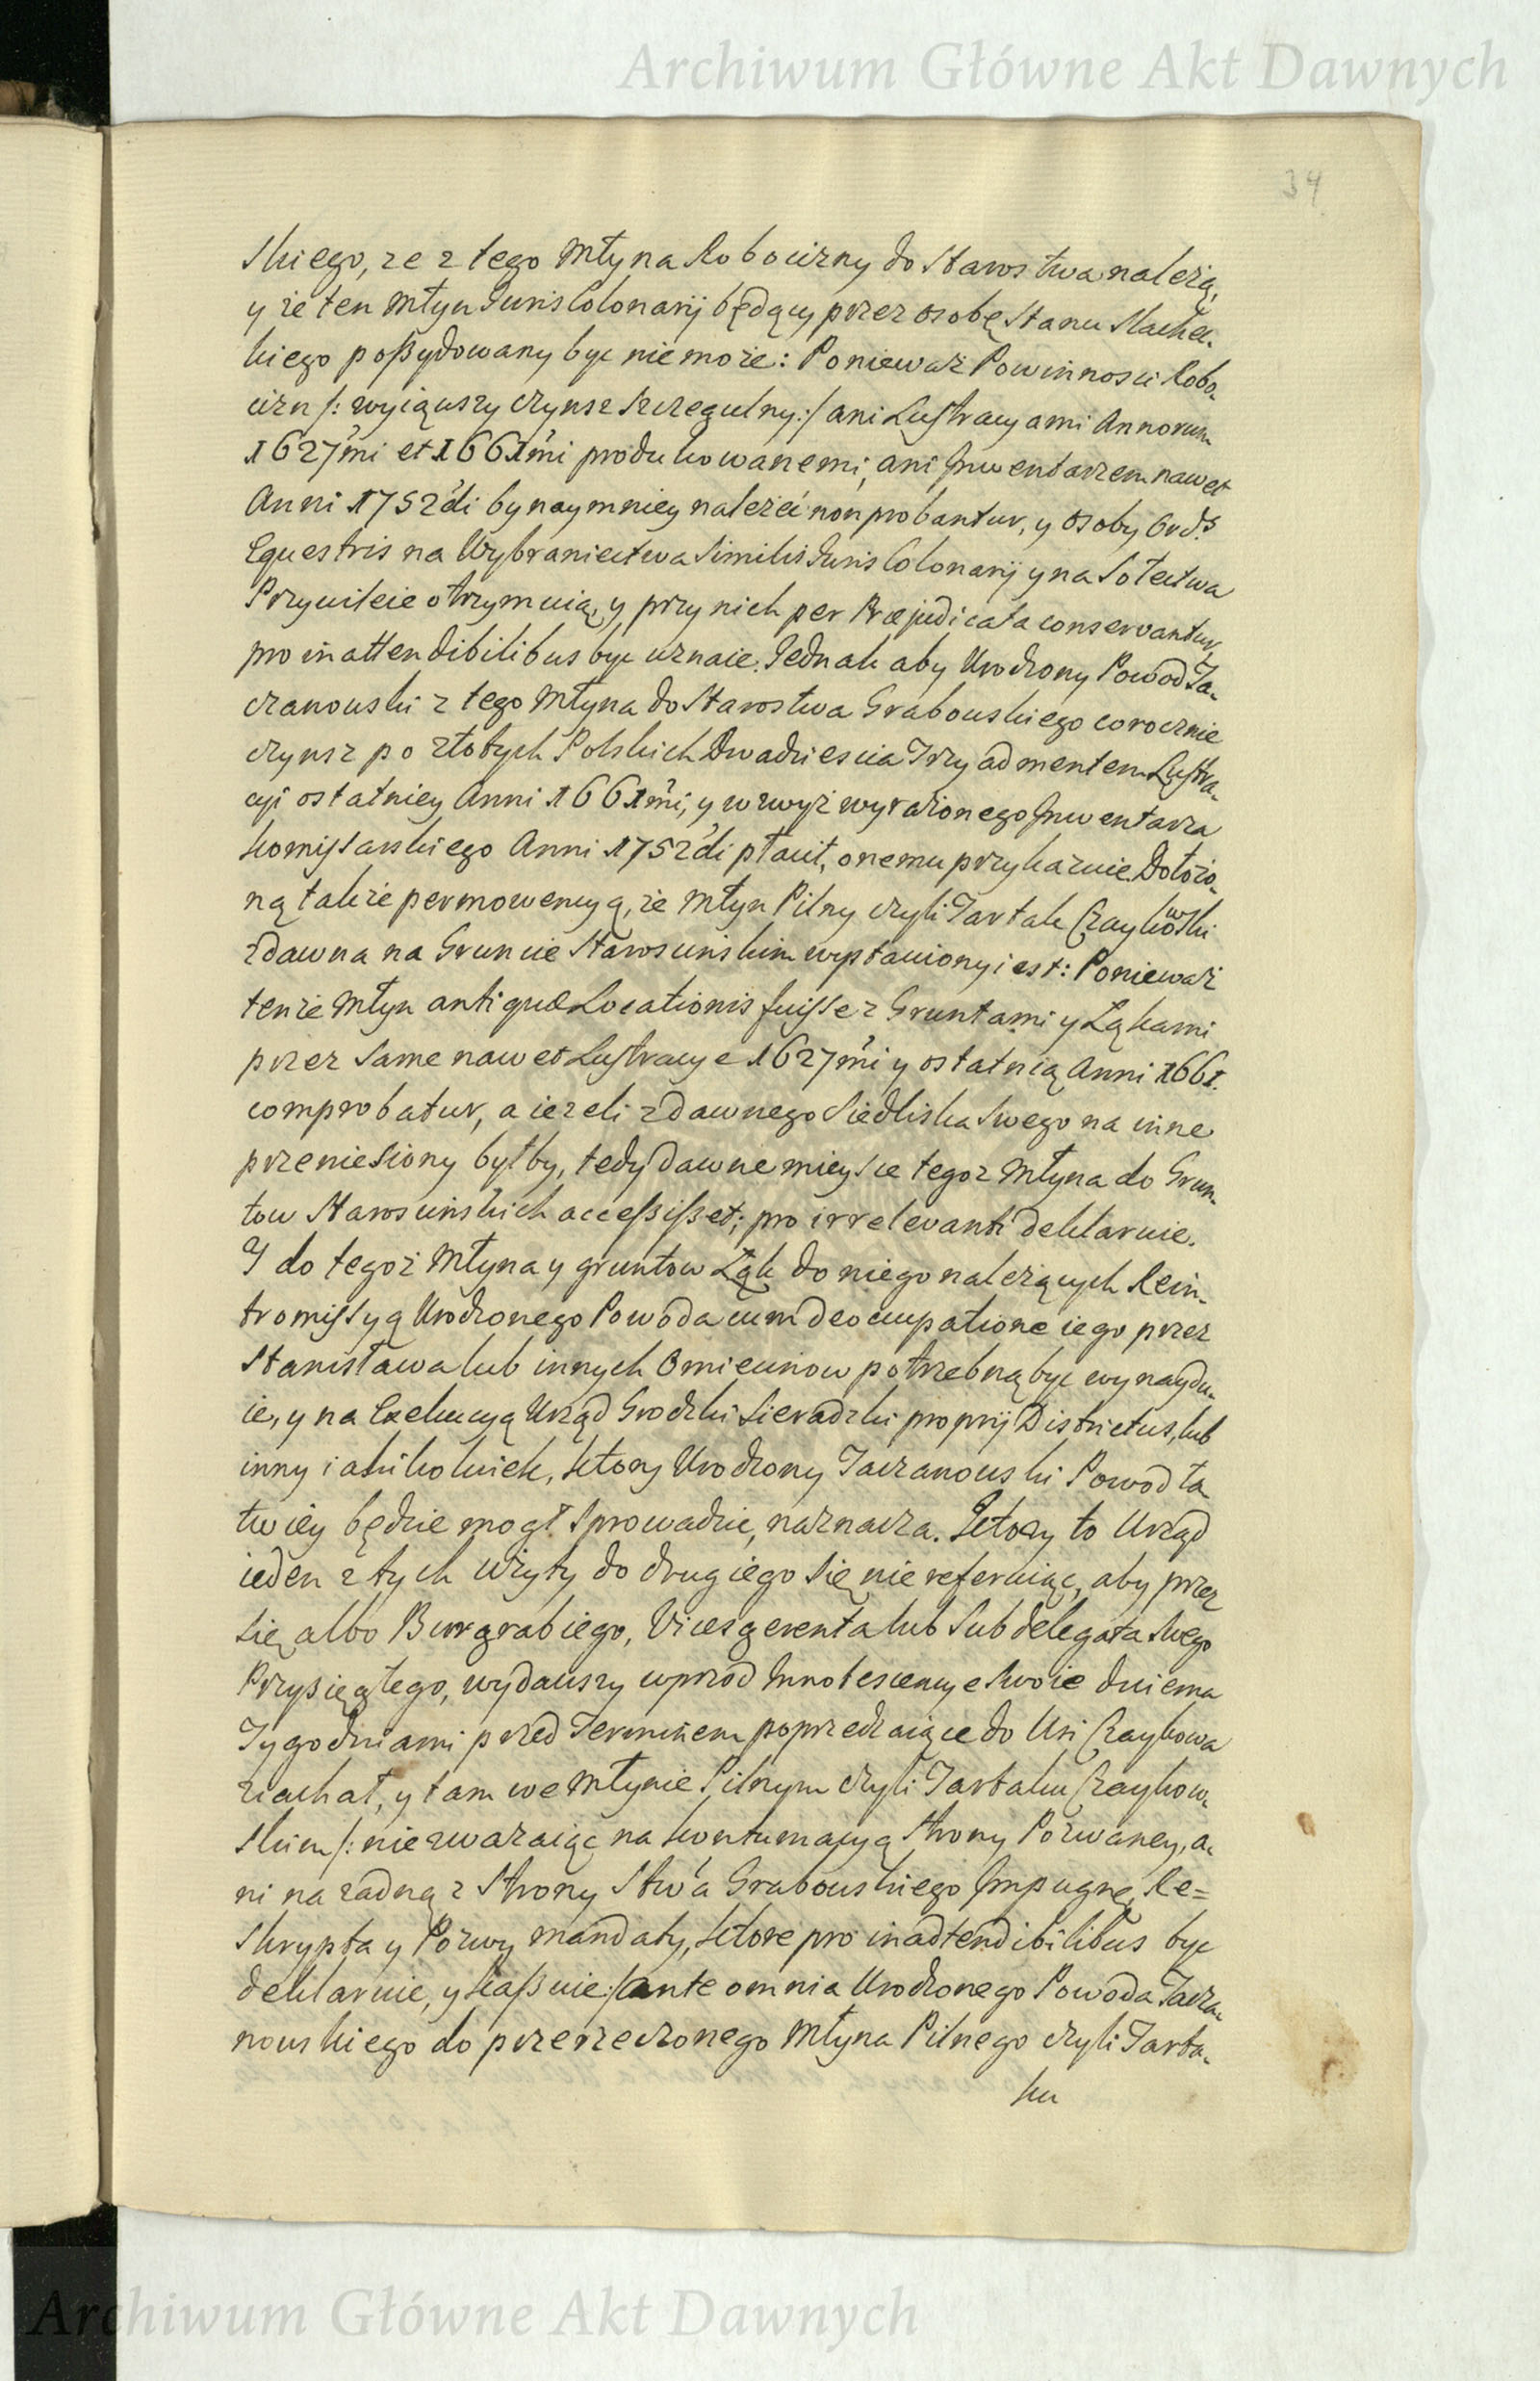 Archiwum Główne Akt Dawnych
34
skiego, ze z tego Młyna Robocizny do Starostwa należą,
y że ten Młyn Juris Colonarij będący przez osobę Stanu Szlachec-
kiego possydowany być nie może: Ponieważ Powinnosci Robo-
cizn /: wyiąwszy czynsz szczegulny :/ ani Lustracyami Annorum
1627mi et 1661mi produkowanemi, ani Inwentarzem nawet
Anni 1752di bynaymniey należeć non probantur, y osoby Ord.s
Equestris na Wybraniectwa similis Juris Colonarij y na Sołectwa
Przywileie otrzymuią, y przy nich per Præjudicata conservantur,
pro inattendibilibus być uznaie. Jednak aby Urodzony Powod Ta-
czanowski z tego Młyna do Starostwa Grabowskiego corocznie
czynsz po złotych Polskich Dwadziescia Trzy ad mentem Lustra-
cyi ostatniey Anni 1661mi, y wzwyż wyrażonego Inwentarza
Kommissarskiego Anni 1752di płacił, onemu przykazuie. Dołożo-
ną także permowencyą, że Młyn Pilny czyli Tartak Czaykowski
zdawna na Gruncie Staroscińskim wystawiony iest: Ponieważ
tenże Młyn antiquæ Locationis fuisse z Gruntami y Łąkami
przez same nawet Lustracye 1627mi y ostatnią Anni 1661.
comprobatur, a ieżeli z dawnego Siedliska swego na inne
przeniesiony byłby, tedy dawne mieysce tegoż Młyna do Grun-
tow Starościńskich accessisset; pro irrelevanti deklaruie.
I do tegoż Młyna y gruntow Łąk do niego należących Rein-
tromissyą Urodzonego Powoda cum deoccupatione iego przez
Stanisława lub innych Omiecinow potrzebną być wynaydu-
ie, y na Exekucyą Urząd Grodzki Sieradzki proprij Districtus, lub
inny iakikolwiek, ktory Urodzony Taczanowski Powod ła
twiey będzie mogł sprowadzić, naznacza. Ktory to Urząd
ieden z tych użyty do drugiego się nie referuiąc, aby przez
się albo Burgrabiego, Vicesgerenta lub Subdelegata swego
Przysięgłego, wydawszy wprzod Innotescencye swoie dwiema
Tygodniami przed Terminem poprzedzaiące do Wsi Czaykowa
ziachał, y tam we Młynie Pilnym czyli Tartaku Czaykow-
skim /: nie zwazaiąc na kontumacyą Strony Pozwaney, a-
ni na żadną z Strony Stwa Grabowskiego Impugnę, Re=
skrypta y Pozwy mandaty, ktore pro inadtendibilibus być
deklaruie, y kassuie :/ ante omnia Urodzonego Powoda Tacza-
nowskiego do przerzeczonego Młyna Pilnego czyli Tarta-
ku
Archiwum Główne Akt Dawnych